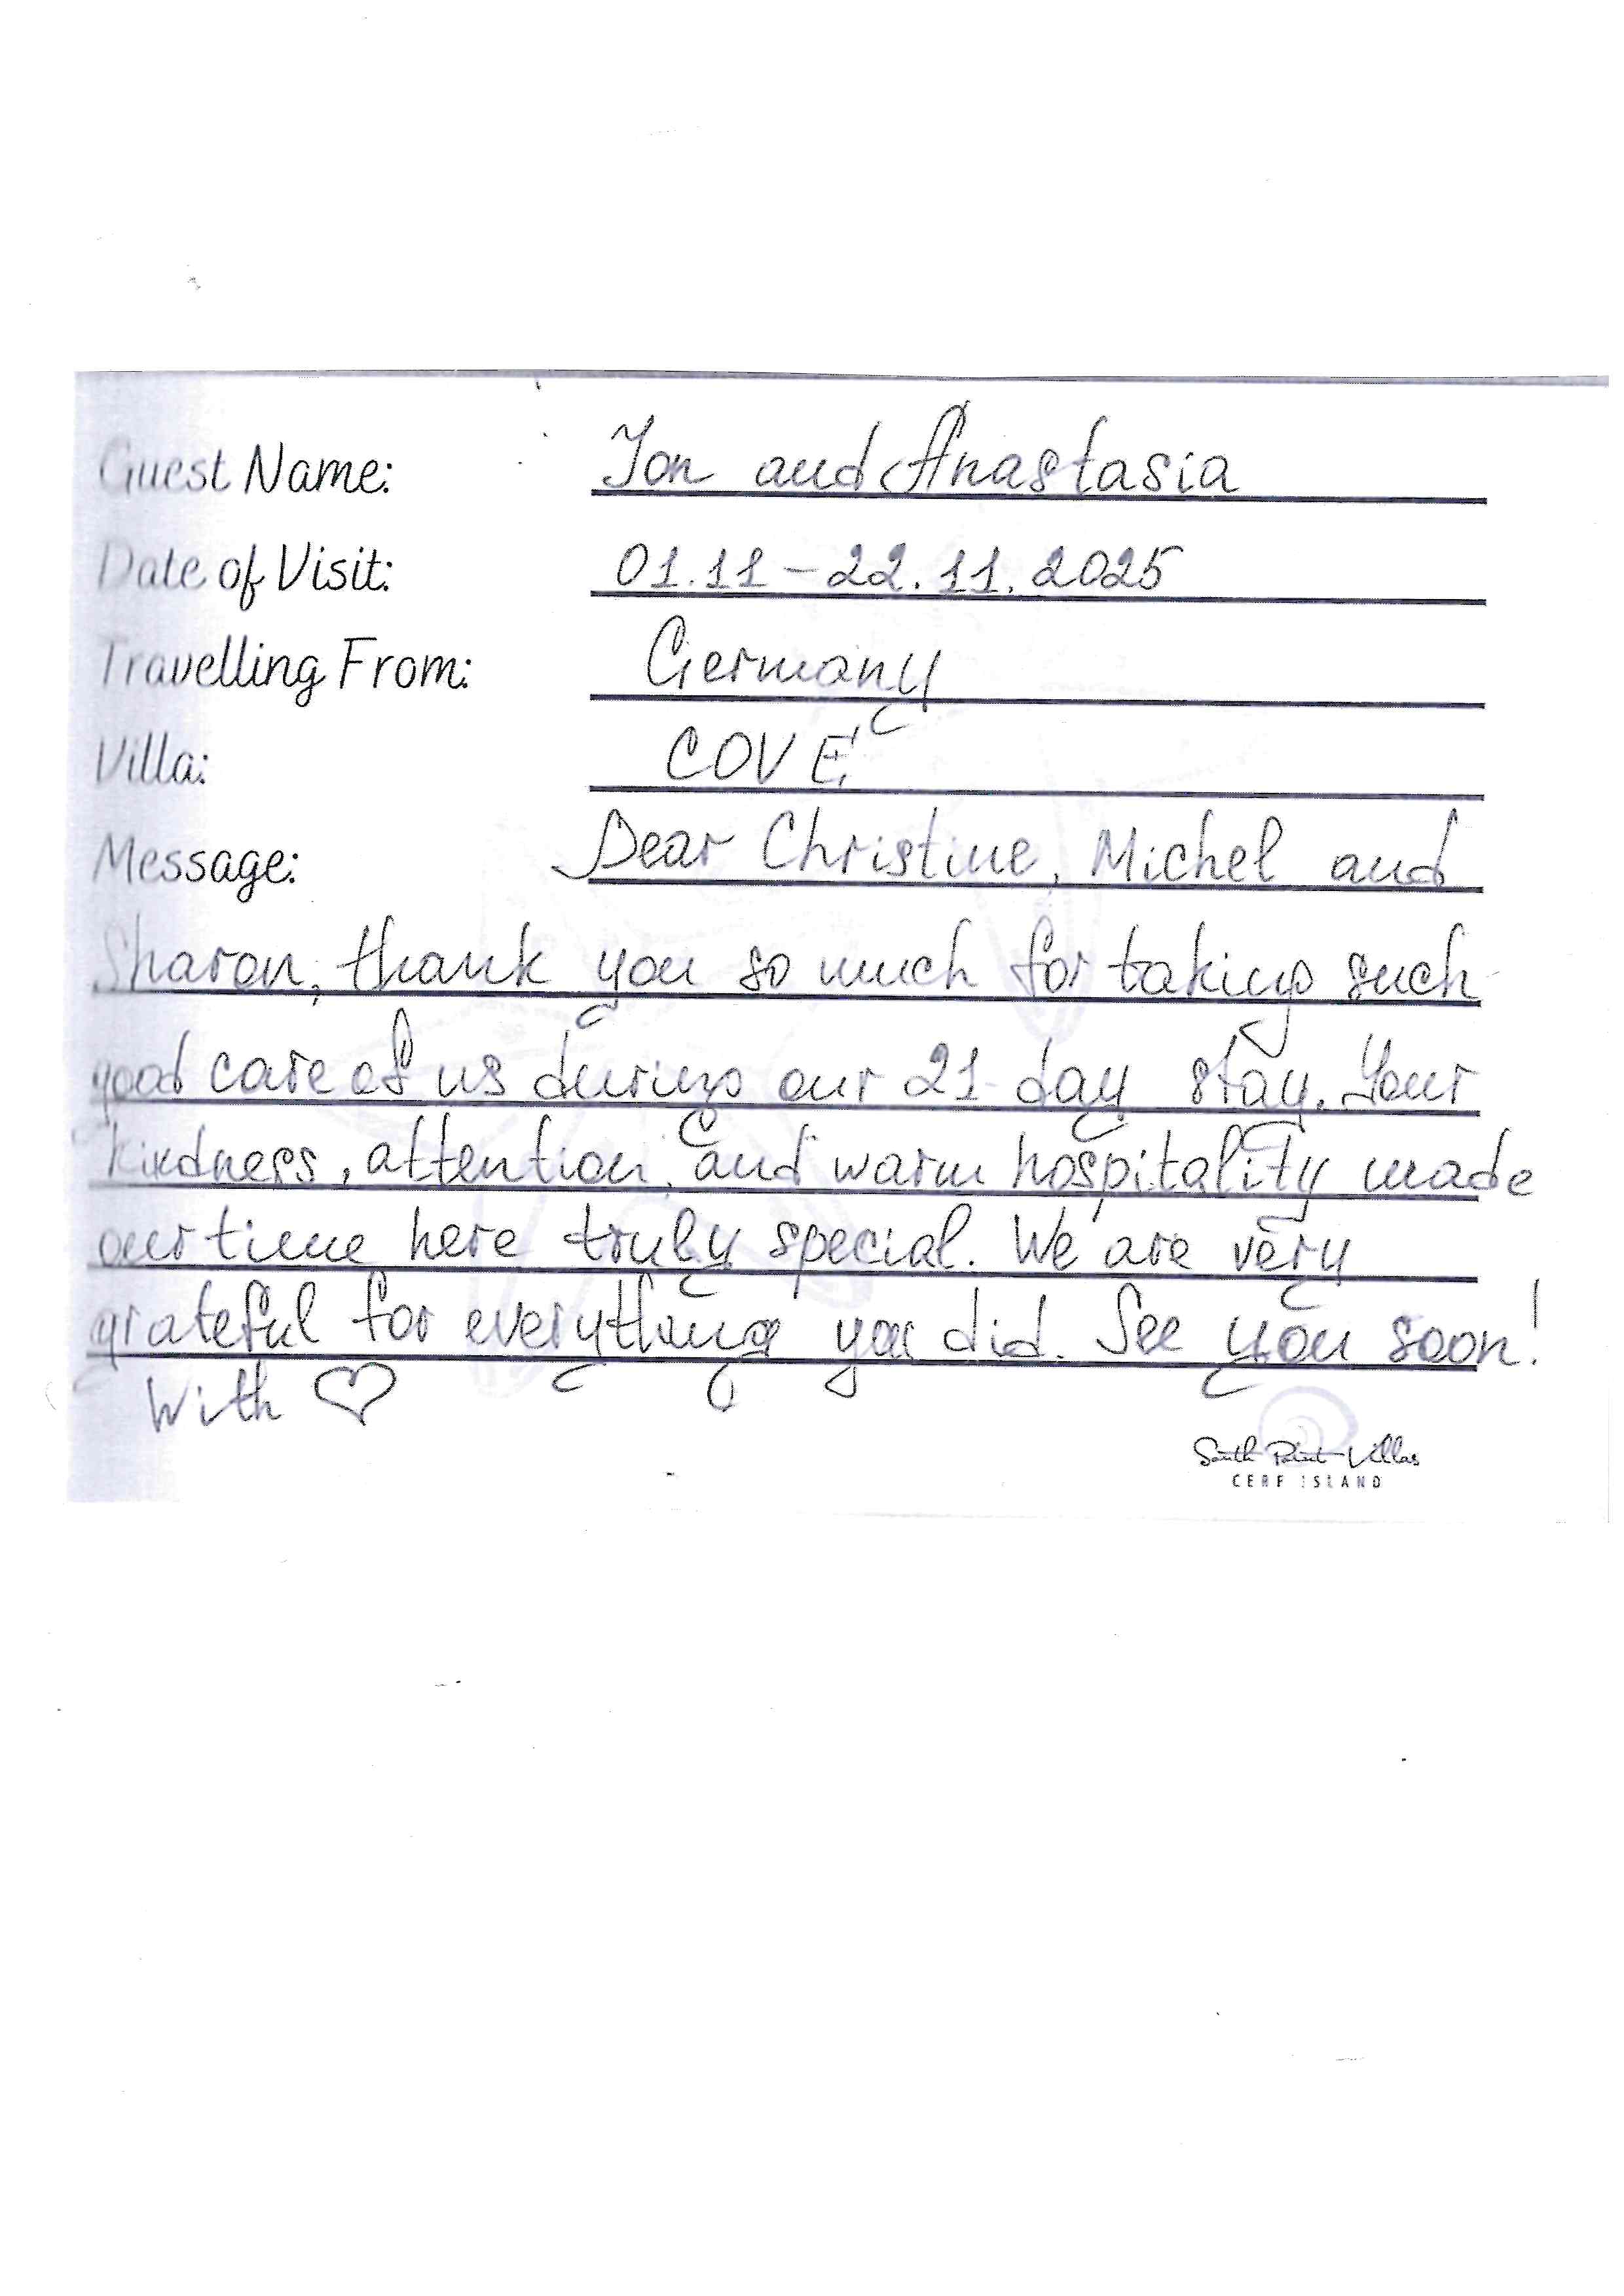 Guest Name: Ion and Anastasia
Date of Visit: 01.11 – 22.11.2025
Travelling From: Germany
Villa: COVE
Message: Dear Christine, Michel and
Sharon, thank you so much for taking such
good care of us during our 21-day stay. Your
kindness, attention, and warm hospitality made
our time here truly special. We are very
grateful for everything you did. See you soon!
With ♡
South Point Villas
CERF ISLAND